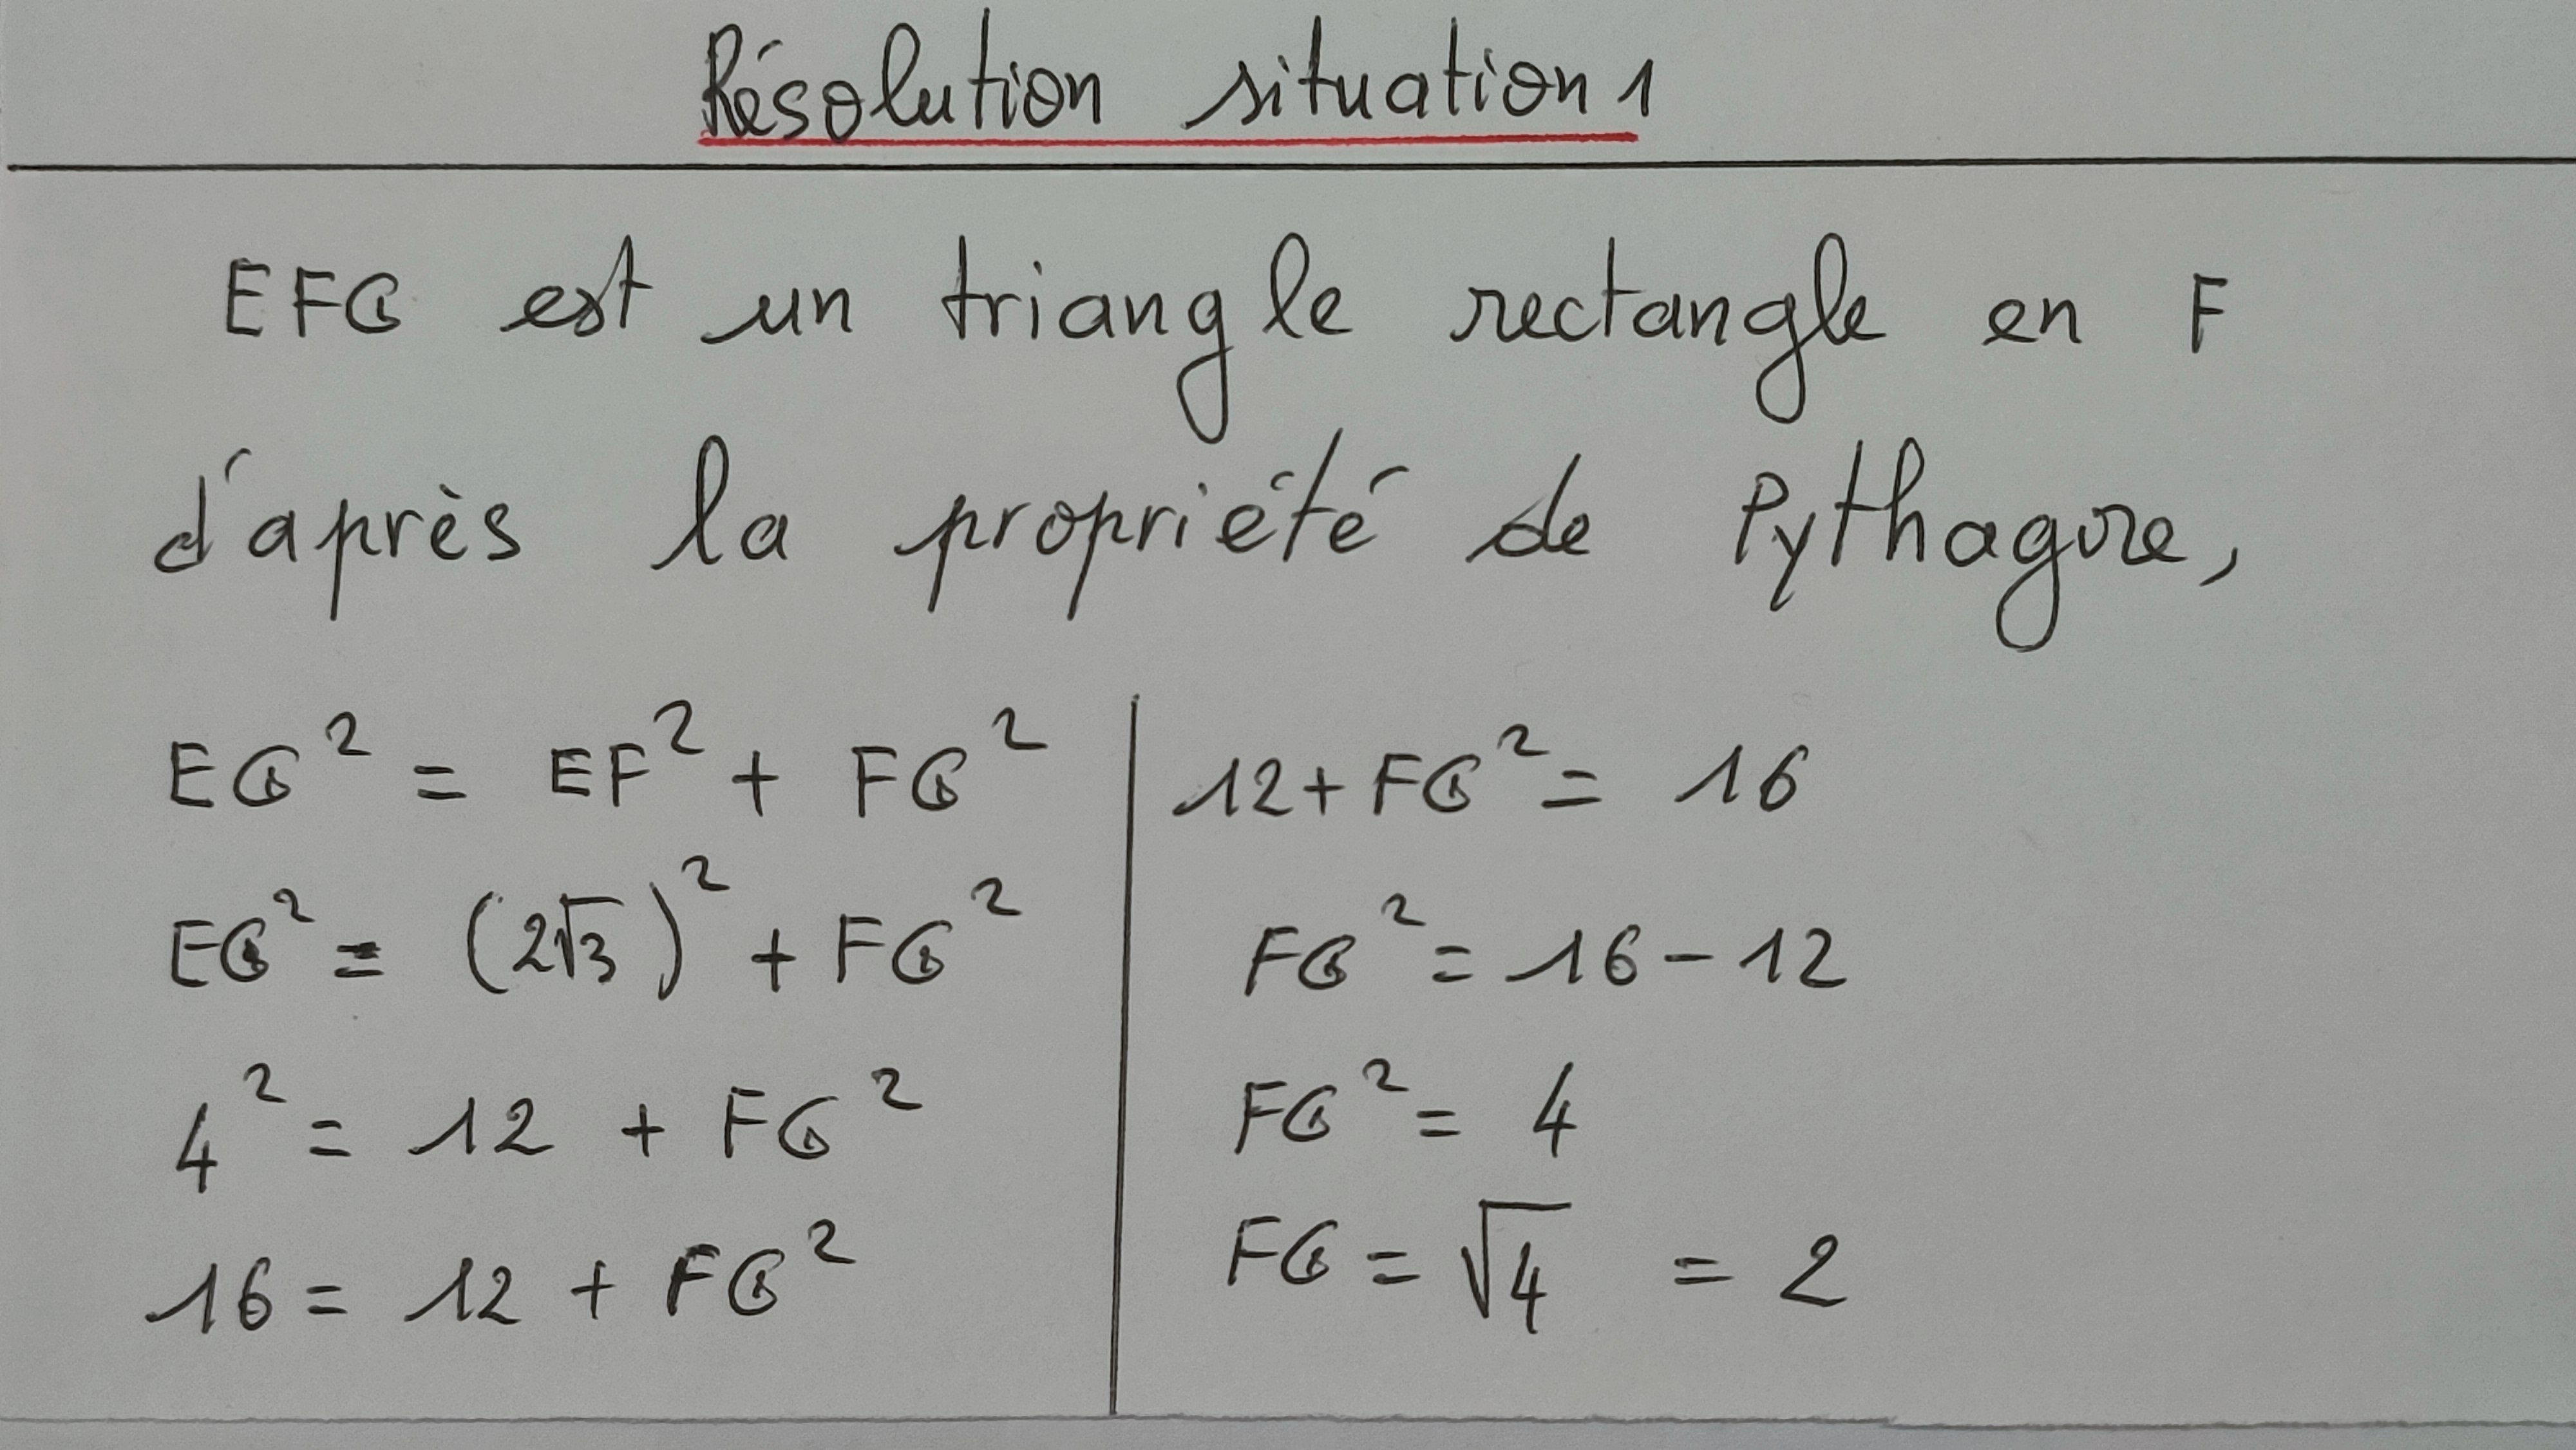 Résolution situation 1
EFG est un triangle rectangle en F
d'après la propriété de Pythagore,
EG² = EF² + FG²
EG² = (2√3)² + FG²
4² = 12 + FG²
16 = 12 + FG²
12 + FG² = 16
FG² = 16 - 12
FG² = 4
FG = √4 = 2